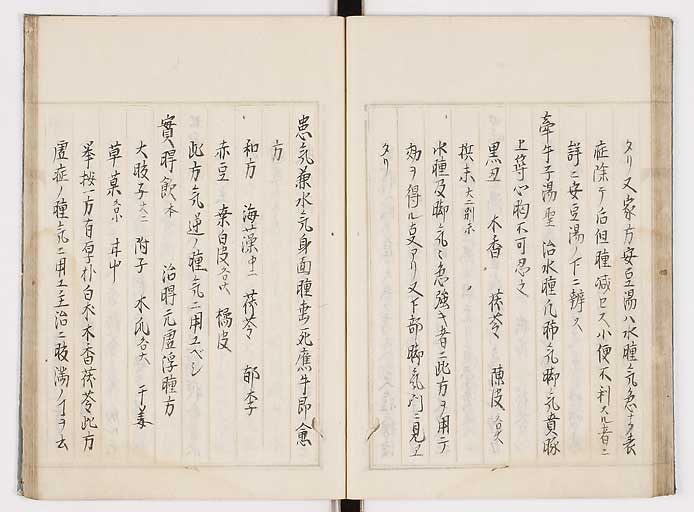 タリ又家方安豆湯ハ水腫気急ナク表
症除テ后但腫減セス小便不利スル者ニ
詳ニ安豆湯ノ下ニ辨ス
牽牛子湯聖 治水腫及肺気脚気賁豚
上筑心胸不可忍之
黒丑 木香 茯苓 陳皮各大
檳榔大二
水腫及脚気ニ急強キ者ニ此方ヲ用テ
効ヲ得ルアリ又下部脚気門ニ見エ
タリ
患気兼水気身面腫垂死鷹牛即愈
方
和方 海藻中二 茯苓 郁李
赤豆 桑白皮各大 橘皮
此方気逆ノ腫気ニ用ユベシ
實脾飲本 治脾元虚浮腫方
大腹子大二 附子 木瓜各大 干姜
草菓各小 甘中
挙按一方有厚朴白朮木香茯苓此方
虚症ノ腫気ニ用ユ主治ニ肢満ノ丁ヲ云